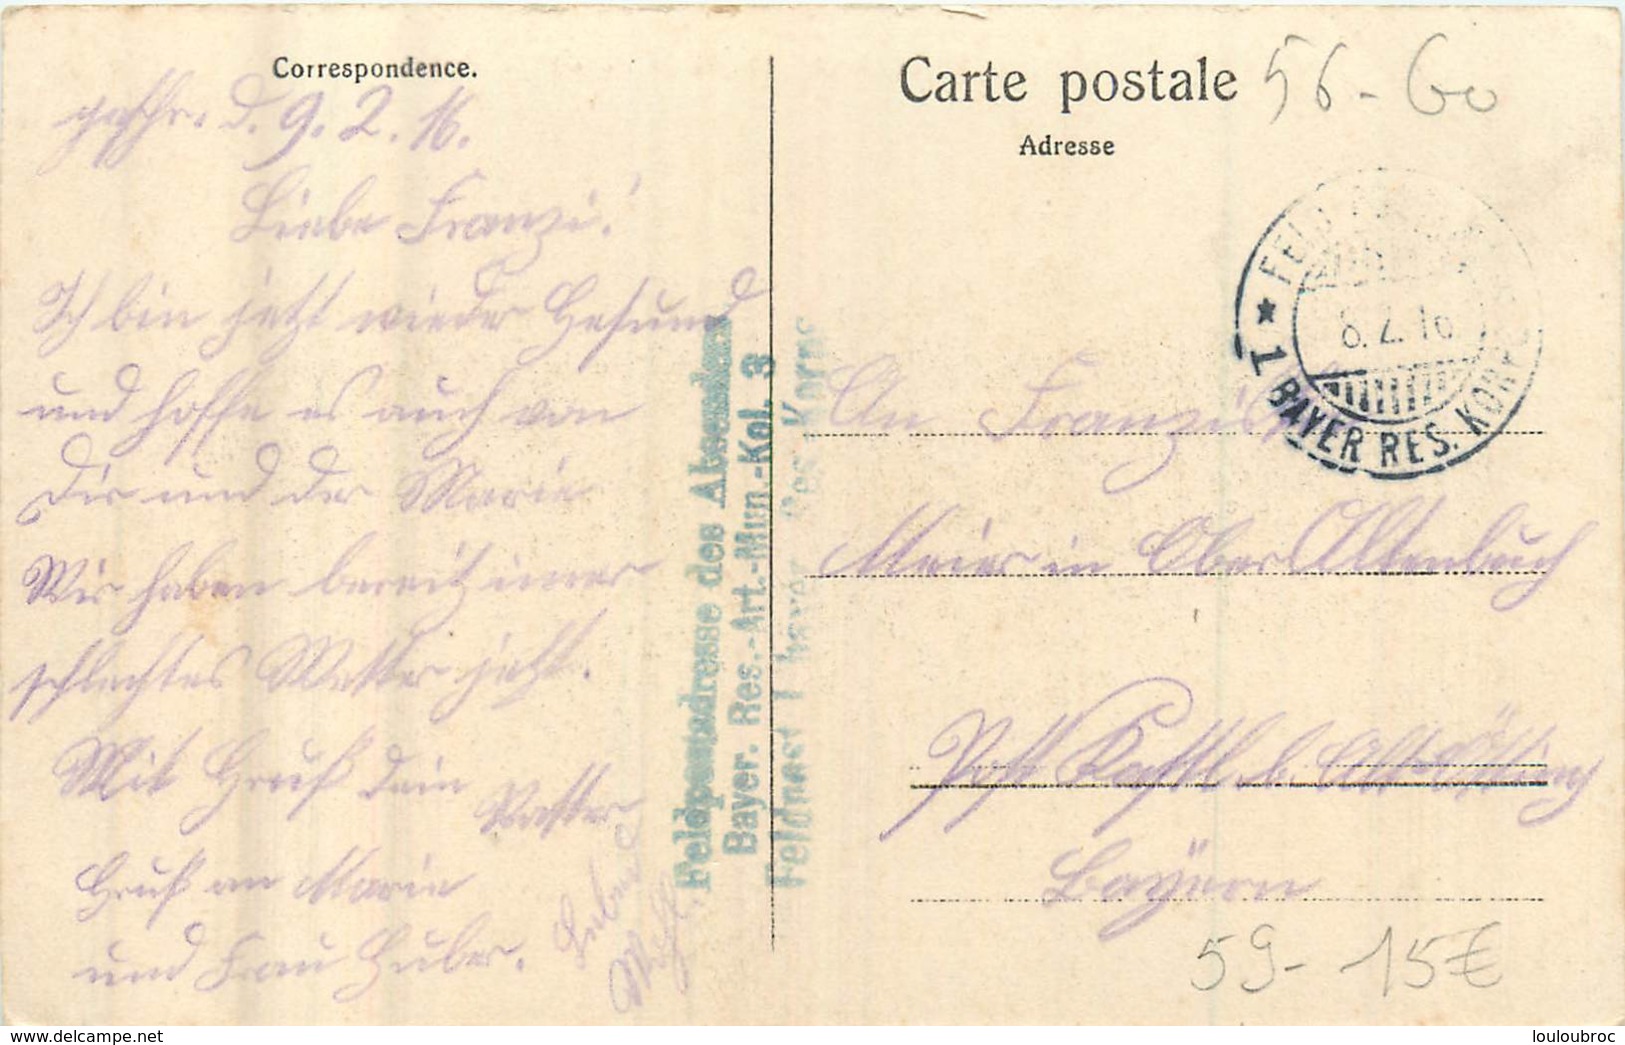 Correspondence.
geschr. d. 9. 2. 16.
Liebe Franzi!
Ich bin jetzt wieder Gesund
und hoffe es auch von
Dir und der Marie
Wir haben bereitz imer
schlechtes Wetter jetzt.
Mit Gruß dein
Vatter
Gruß an Marie
und Frau Huber.
Lebe
Wohl.
Feldpostadresse des Absenders
Bayer. Res.-Art.-Mun.-Kol. 3
Feldpost I bayer Res Korps
Carte postale
Adresse
56-60
FELD
8.2.16
* 1 BAYER RES. KORPS
An Franziska
Meier in Ober Altenbuch
Post Kastl b. Alt-Ötting
Bayern
59- 15€
delcampe.net
louloubroc